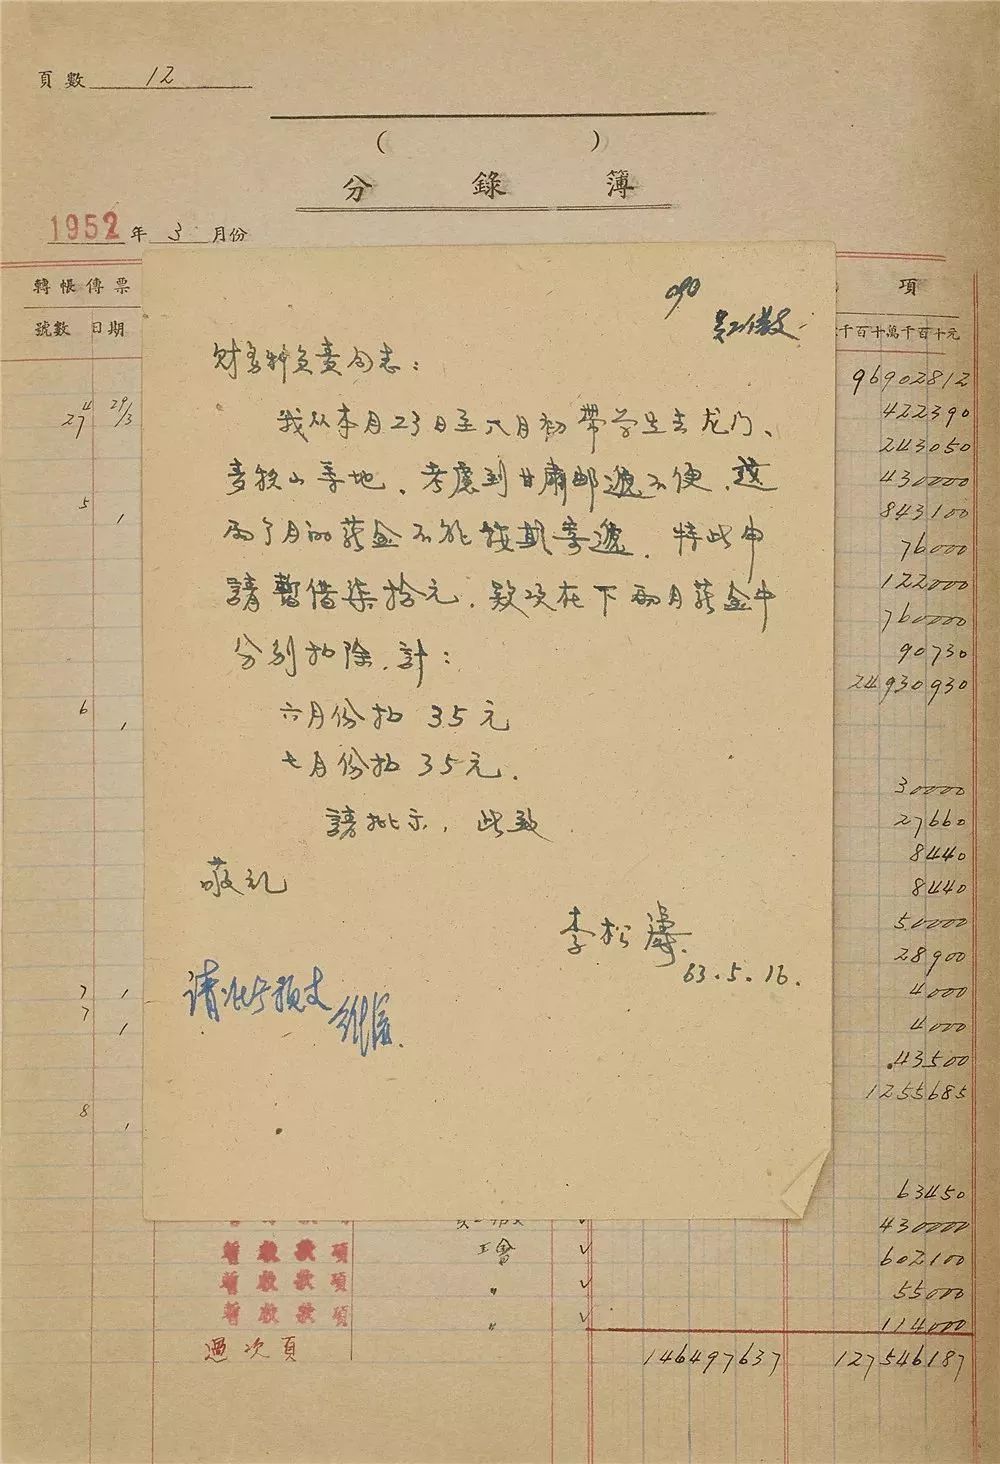 頁數 12
( )
分錄簿
1952年 3 月份
轉帳傳票
項
號數 日期
千百十萬千百十元
090
财务科负责同志：
我从本月23日至六月初带学生去龙门、
麦积山等地，考慮到甘肅邮遞不便，这
两个月的薪金不能按期寄遞，特此申
請暫借柒拾元，款项在下兩月薪金中
分别扣除，計：
六月份扣 35元
七月份扣 35元．
請批示，此致
敬礼
李松濤．
63.5.16.
请准予预支
4 29/3
27
5 1
6 1
7 1
7 1
8 1
96902812
422390
243050
430000
843100
76000
122000
760000
90730
24930930
30000
27660
8440
8440
50000
28900
4000
4000
43500
1255685
63450
430000
工會 ✓ 602100
暫收款項 〃 ✓ 55000
暫收款項 〃 ✓ 114000
過次頁 146497637 127546187